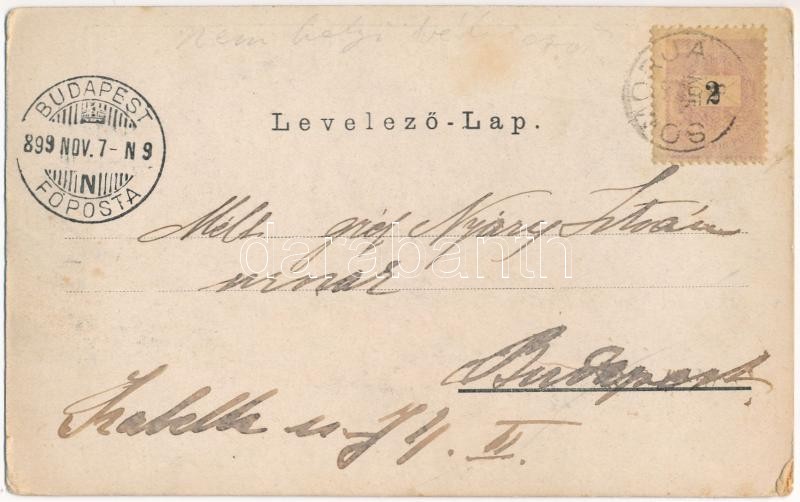 Nem helyi
BUDAPEST
899 NOV. 7 - N 9
N
FŐPOSTA
2
Levelező-Lap.
Mélt. gróf Nyáry István
urnak
darabanth
Budapest
Izabella u.
II.